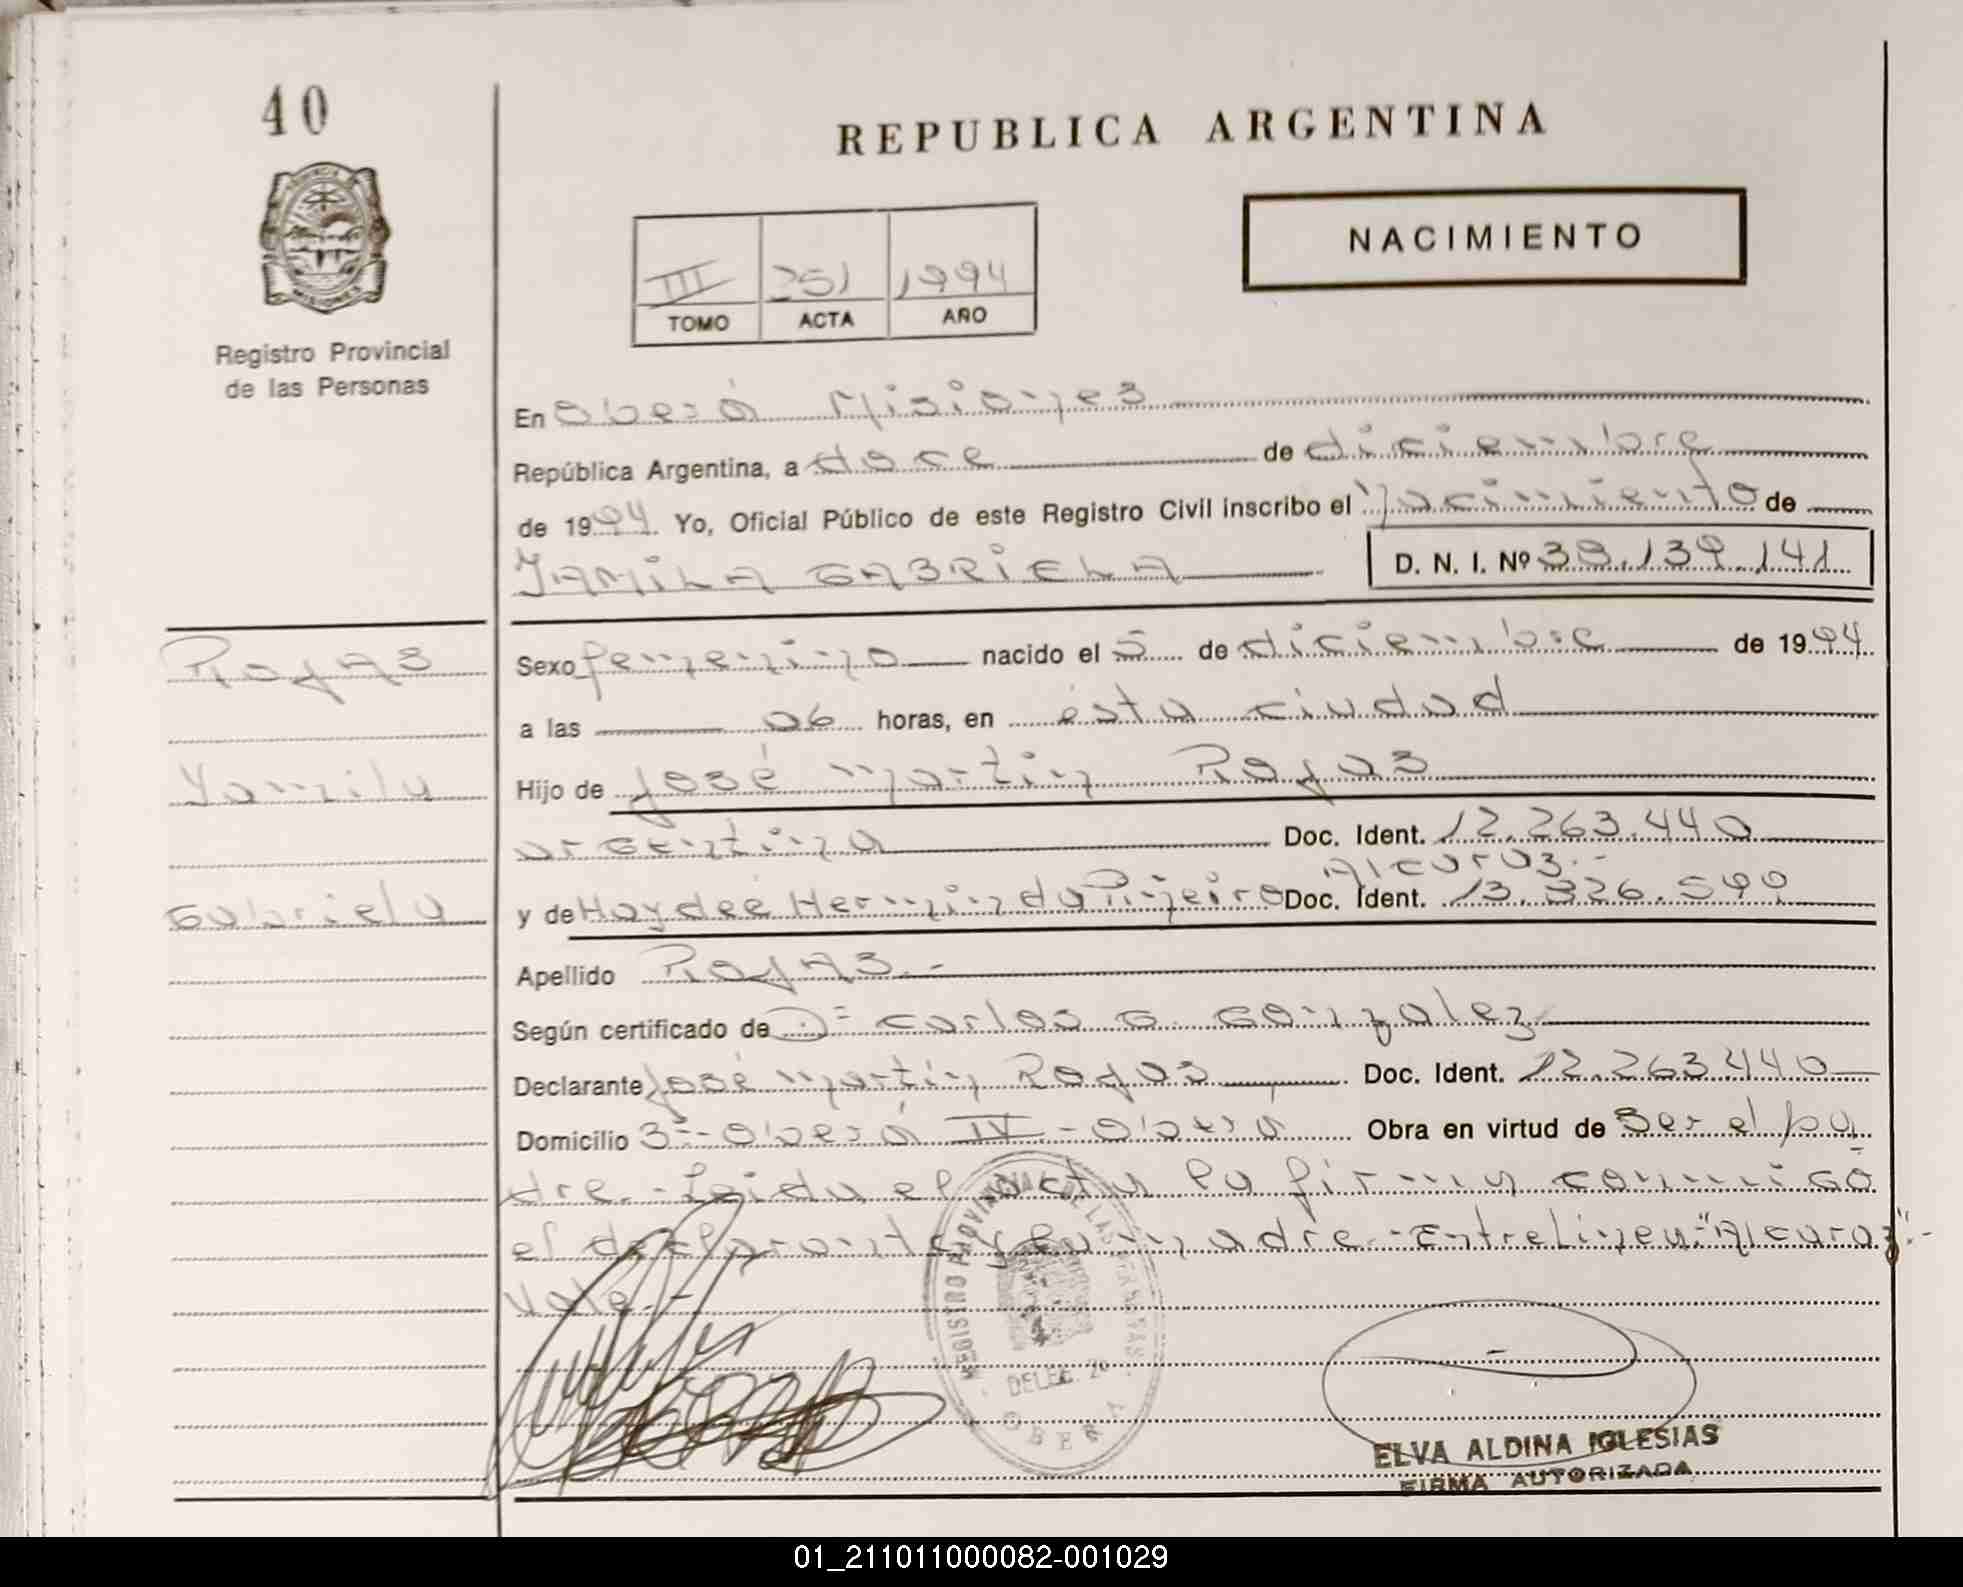 40
REPUBLICA ARGENTINA
NACIMIENTO
III 251 1994
TOMO ACTA AÑO
MISIONES
Registro Provincial
de las Personas
En Oberá Misiones
República Argentina, a doce de diciembre
de 1994 Yo, Oficial Público de este Registro Civil inscribo el Nacimiento de
YAMILA GABRIELA D. N. I. Nº 38.139.141
Rojas
Yamila
Gabriela
Sexo femenino nacido el 5 de diciembre de 1994
a las 06 horas, en ésta ciudad
Hijo de José Martín Rojas
argentina Doc. Ident. 12.263.440
Alcaraz.-
y de Haydeé Herminda Piñeiro Doc. Ident. 13.326.599
Apellido Rojas.-
Según certificado de Dr Carlos G. Gonzalez
Declarante José Martín Rojas Doc. Ident. 12.263.440
Domicilio Oberá IV - Oberá Obra en virtud de ser el pa
dre.- Leida el acta la firman conmigo
el declarante y la madre.- Entrelinea: "Alcaraz".-
Vale.-
REGISTRO PROVINCIAL DE LAS PERSONAS
DELEG. 2º
OBERA
ELVA ALDINA IGLESIAS
FIRMA AUTORIZADA
01_211011000082-001029